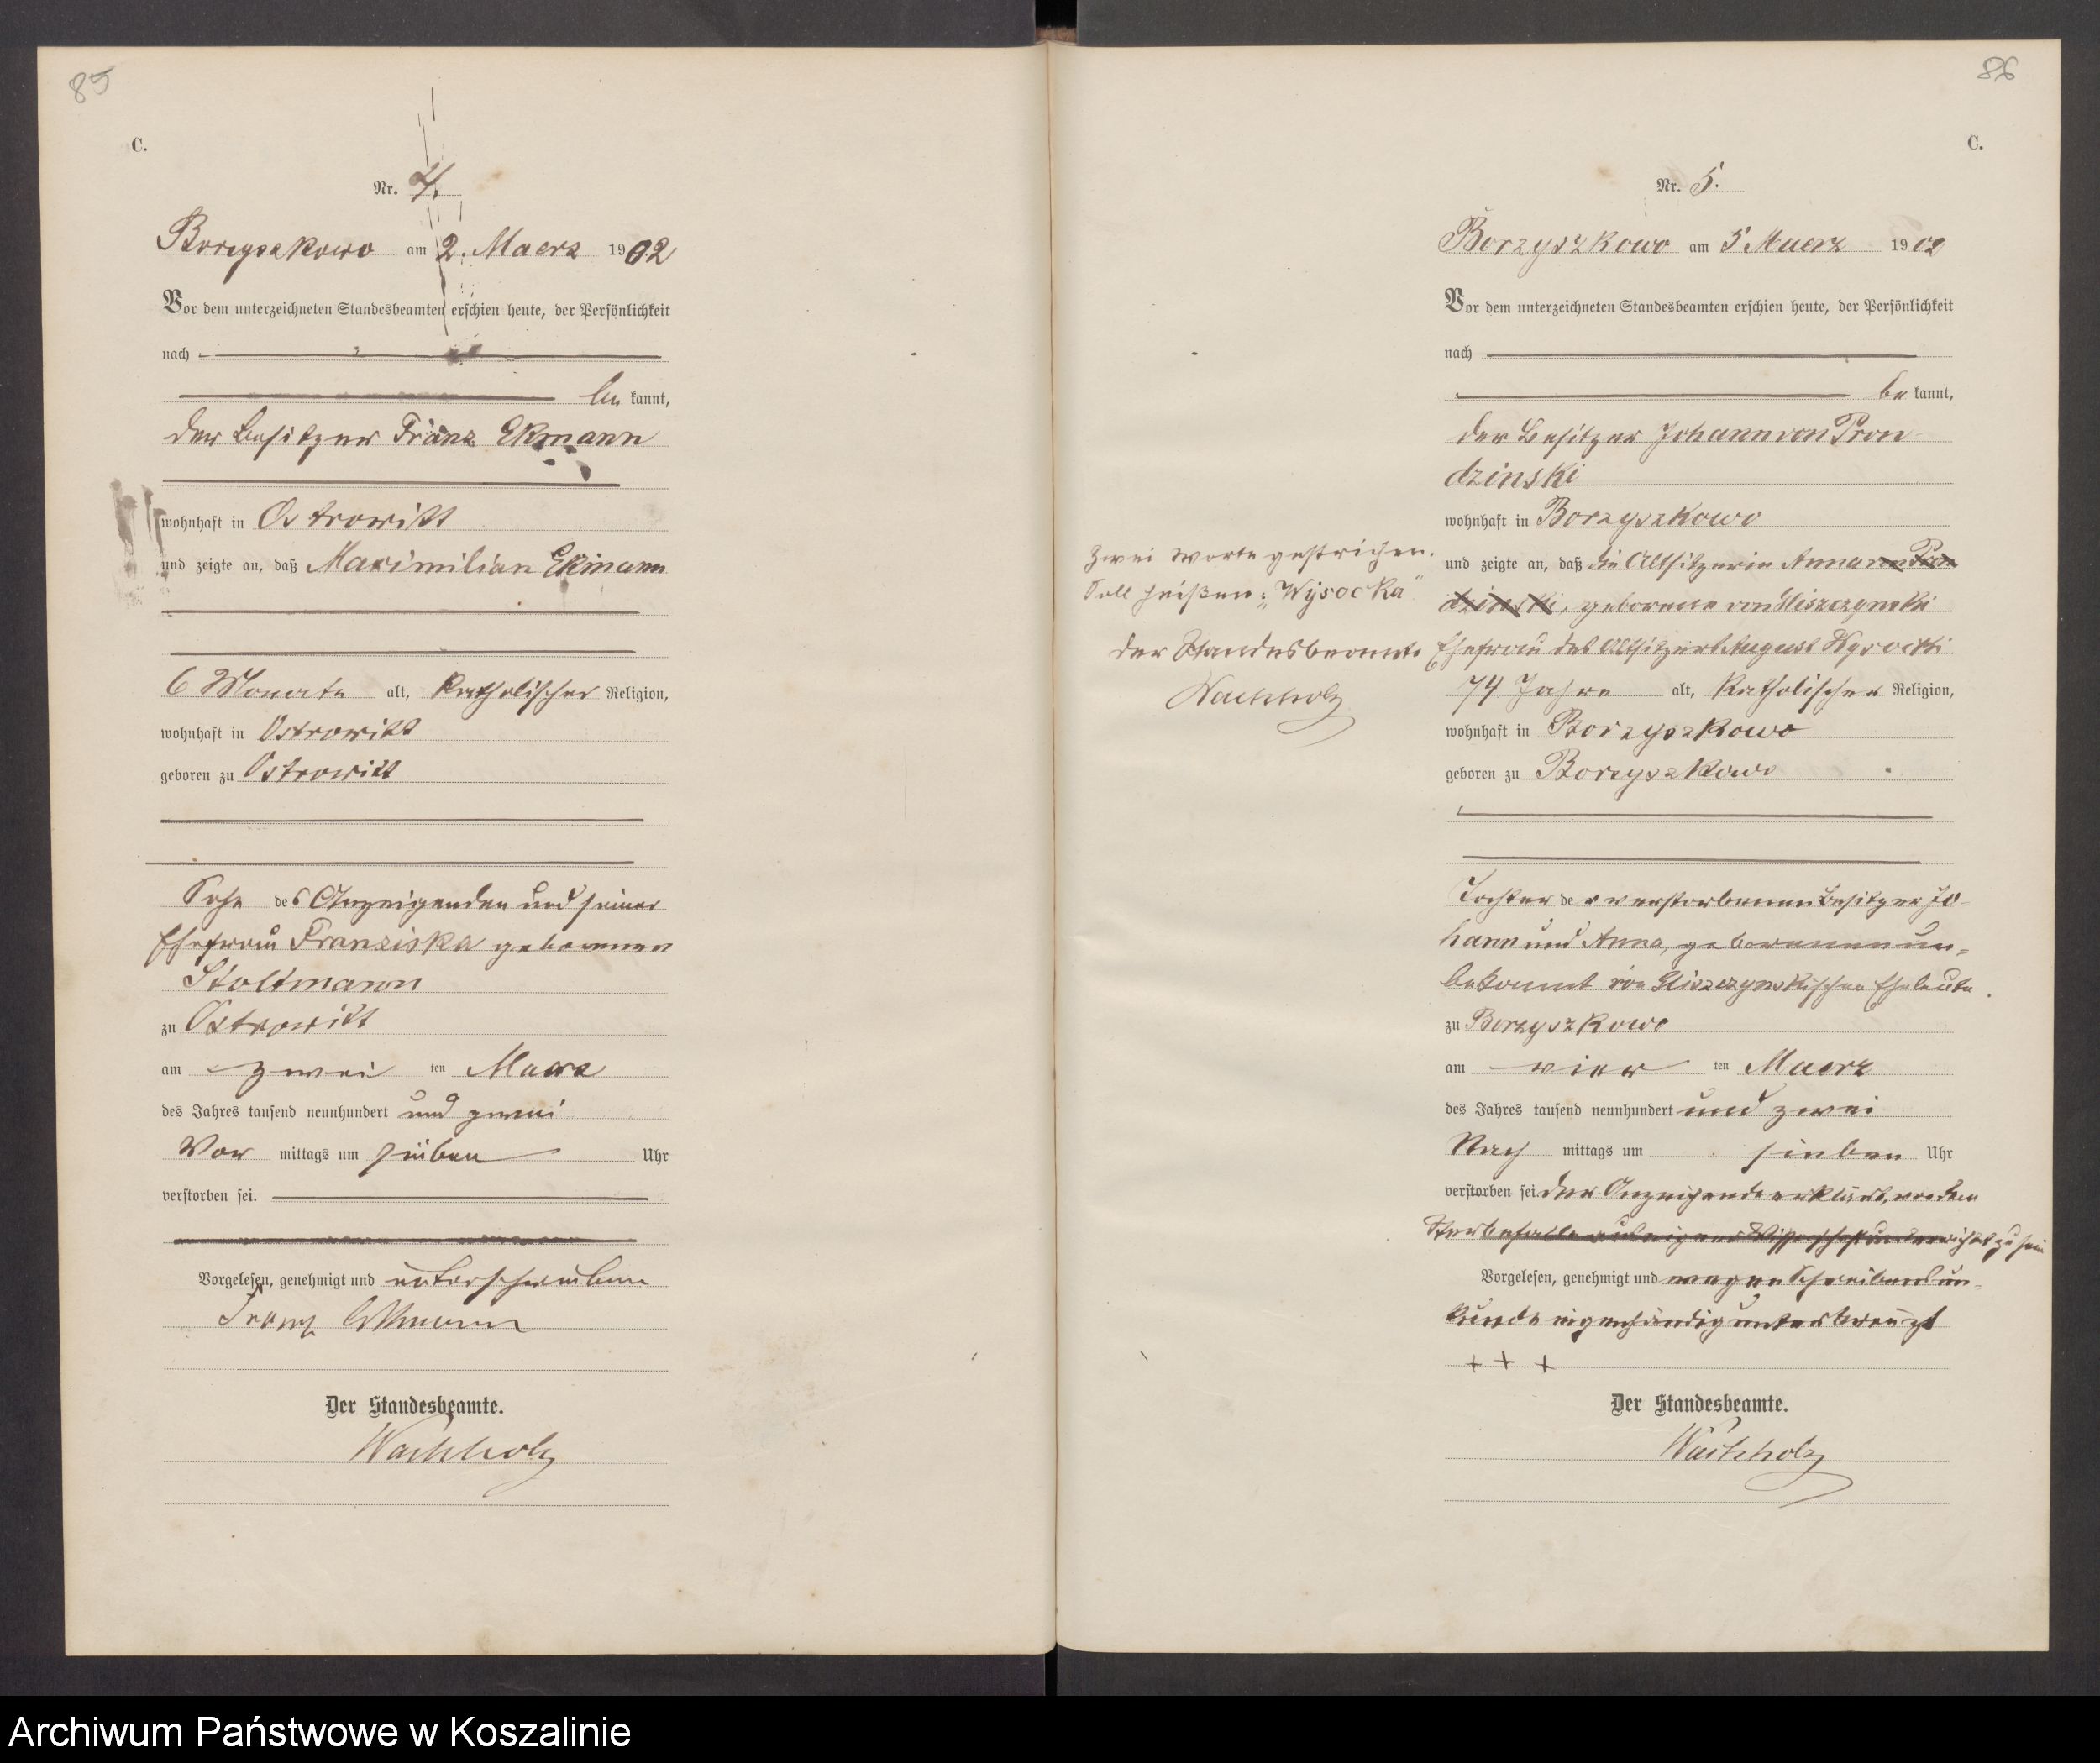 85
C.
Nr. 4.
Borzyszkowo am 2. Maerz 1902
Vor dem unterzeichneten Standesbeamten erschien heute, der Persönlichkeit
nach
be kannt,
der Besitzer Franz Ekmann
wohnhaft in Ostrowitt
und zeigte an, daß Maximilian Ekmann
6 Monate alt, katholischer Religion,
wohnhaft in Ostrowitt
geboren zu Ostrowitt
Sohn des Anzeigenden und seiner
Ehefrau Franziska geborenen
Stoltmann
zu Ostrowitt
am zwei ten Maerz
des Jahres tausend neunhundert und zwei
Vor mittags um sieben Uhr
verstorben sei.
Vorgelesen, genehmigt und unterschrieben
Franz Ekmann
Der Standesbeamte.
Wachholz
86
C.
Nr. 5.
Borzyszkowo am 5 Maerz 1902
Vor dem unterzeichneten Standesbeamten erschien heute, der Persönlichkeit
nach
be kannt,
der Besitzer Johann von Pron
dzinski
wohnhaft in Borzyszkowo
und zeigte an, daß die Altsitzerin Anna von Pron
dzinski, geborene von Gliszczynski
Ehefrau des Altsitzers August Wysocki
74 Jahre alt, katholischer Religion,
wohnhaft in Borzyszkowo
geboren zu Borzyszkowo
Tochter der verstorbenen Besitzer Jo-
hann und Anna, geborenen un=
bekannt von Gliszczynskischen Eheleute.
zu Borzyszkowo
am vier ten Maerz
des Jahres tausend neunhundert und zwei
Nach mittags um sieben Uhr
verstorben sei. Der Anzeigende erklärt, von dem
Sterbefalle aus eigener Wissenschaft unterrichtet zu sein
Vorgelesen, genehmigt und wegen Schreibens un-
kunde eigenhändig unterkreuzt
+ + +
Der Standesbeamte.
Wachholz
Zwei Worte gestrichen.
Soll heißen: „Wysocka"
Der Standesbeamte
Wachholz
Archiwum Państwowe w Koszalinie